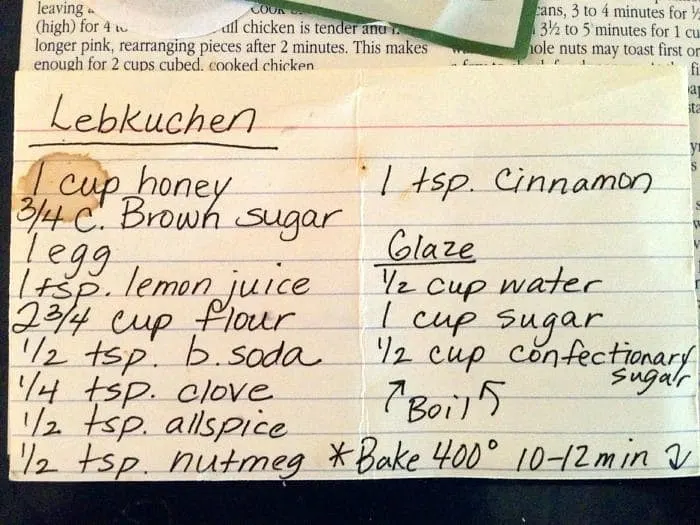 leaving
(high) for 4
chicken is tender and
longer pink, rearranging pieces after 2 minutes. This makes
enough for 2 cups cubed, cooked chicken
cans, 3 to 4 minutes for
3½ to 5 minutes for 1 cu
nuts may toast first or
Lebkuchen
1 cup honey
3/4 C. Brown sugar
1 egg
1 tsp. lemon juice
2 3/4 cup flour
1/2 tsp. b.soda
1/4 tsp. clove
1/2 tsp. allspice
1/2 tsp. nutmeg
1 tsp. Cinnamon
Glaze
1/2 cup water
1 cup sugar
1/2 cup confectionary
sugar
↑ Boil ↑
*Bake 400° 10-12 min ↓